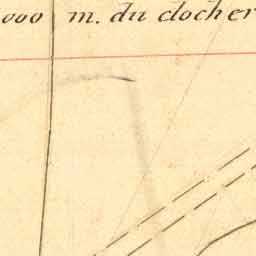 000 m. du clocher